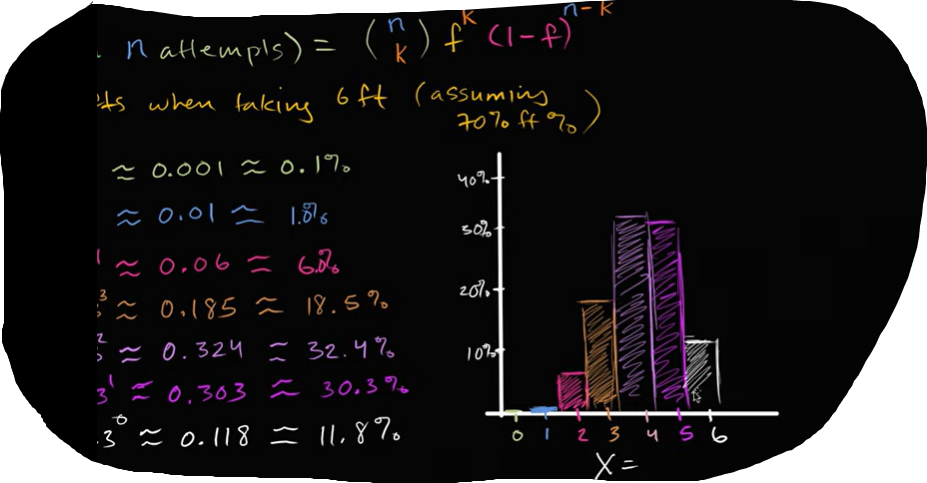 n attempts) = (n k) f^k (1-f)^n-k
ts when taking 6 ft (assuming
70% ft %)
≈ 0.001 ≈ 0.1%
≈ 0.01 ≈ 1.0%
1 ≈ 0.06 ≈ 6.0%
3 ≈ 0.185 ≈ 18.5%
2 ≈ 0.324 ≈ 32.4%
3^1 ≈ 0.303 ≈ 30.3%
.3^0 ≈ 0.118 ≈ 11.8%
40%
30%
20%
10%
0 1 2 3 4 5 6
X =